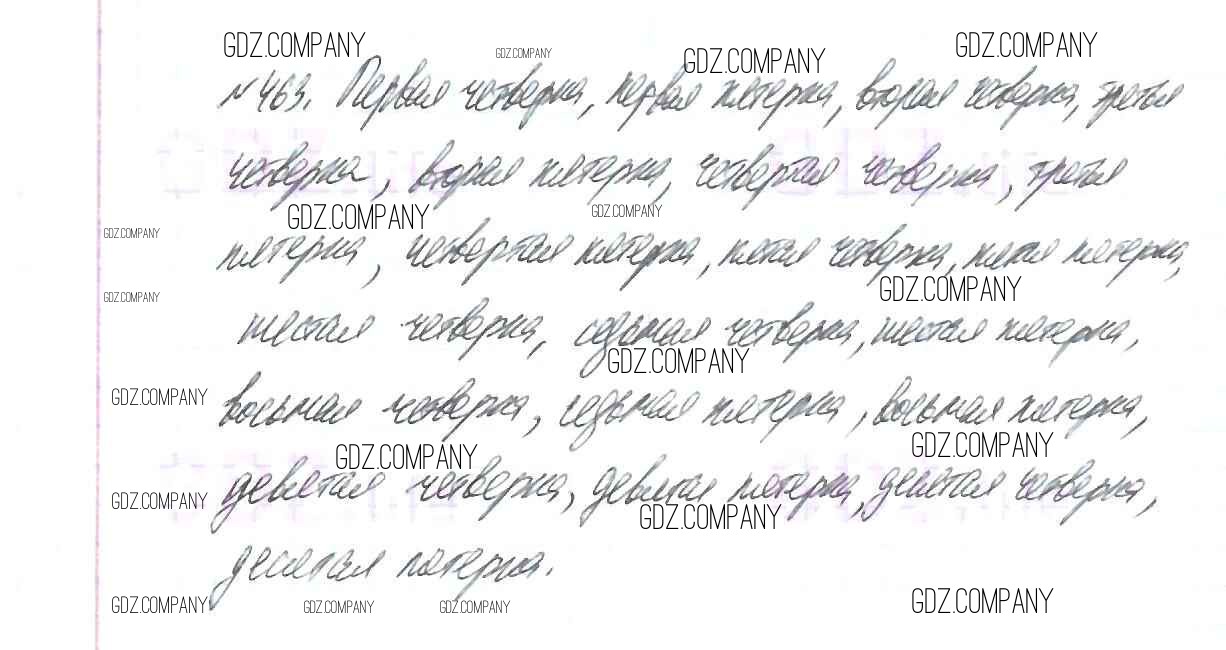 GDZ.COMPANY GDZ.COMPANY GDZ.COMPANY GDZ.COMPANY
№463. Первая четверка, первая пятерка, вторая четверка, третья
четверка, вторая пятерка, четвертая четверка, третья
GDZ.COMPANY GDZ.COMPANY
GDZ.COMPANY
пятерка, четвертая пятерка, пятая четверка, пятая пятерка,
GDZ.COMPANY GDZ.COMPANY
шестая четверка, седьмая четверка, шестая пятерка,
GDZ.COMPANY
GDZ.COMPANY
восьмая четверка, седьмая пятерка, восьмая пятерка,
GDZ.COMPANY GDZ.COMPANY
GDZ.COMPANY
девятая четверка, девятая пятерка, десятая четверка,
GDZ.COMPANY
десятая пятерка.
GDZ.COMPANY GDZ.COMPANY GDZ.COMPANY GDZ.COMPANY